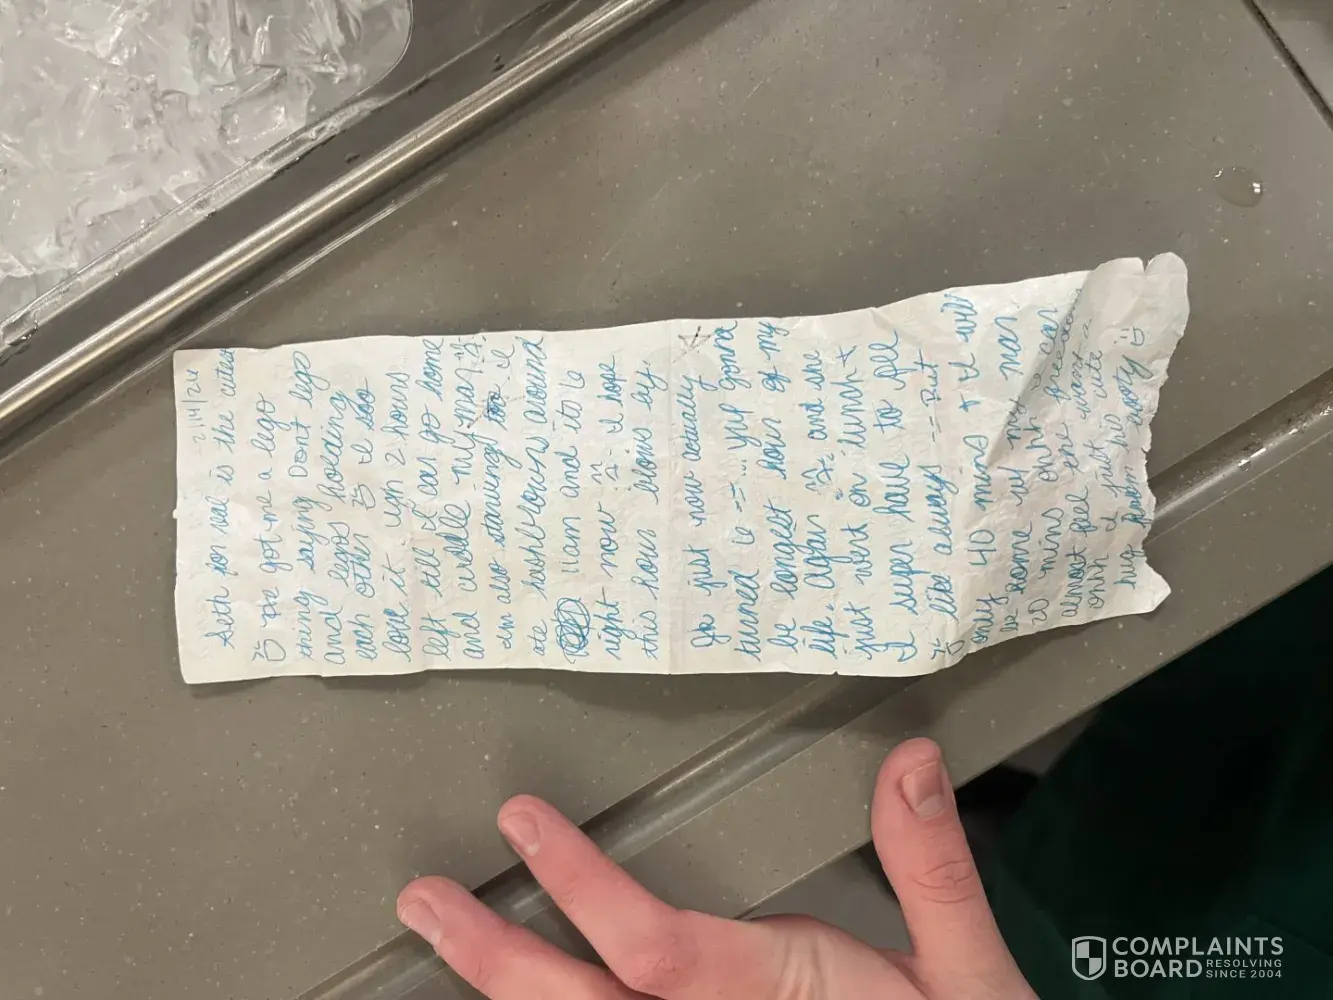 2/14/24
Seth for real is the cutest
he got me a lego
thing saying Dont lego
and legs holding
each other I soo
love it. Um 2 hours
left till I can go home
and cuddle my man
Im also starving I
ate hashbrowns around
11am and its 6
right now I hope
this hour goes by
Ya just now actually
turned 6 -- yup gonna
be longest hour of my
life. Again and she
just went on lunch +
I super have to pee
like always -- But
only 40 mins + I will
be home w/ my man
20 mins ohh
almost
ohh I put his
bug
COMPLAINTS
BOARD RESOLVING
SINCE 2004